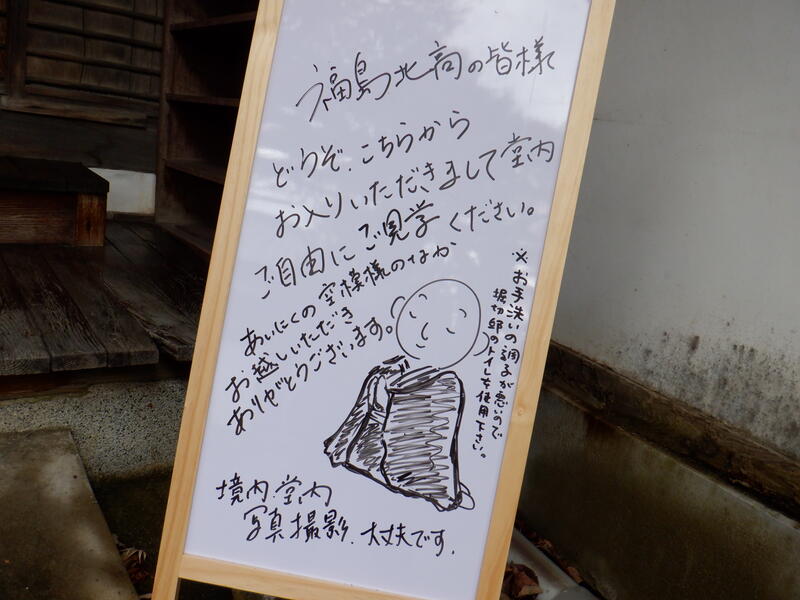 福島北高の皆様
どうぞ、こちらから
お入りいただきまして堂内
ご自由にご見学ください。
あいにくの空模様のなか
お越しいただき
ありがとうございます。
※お手洗いの調子が悪いので
堀切邸のトイレを使用下さい。
境内、堂内
写真撮影、大丈夫です.